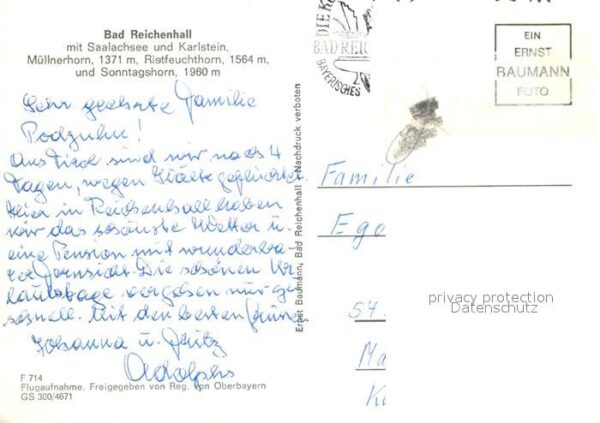 Bad Reichenhall
mit Saalachsee und Karlstein,
Müllnerhorn, 1371 m, Ristfeuchthorn, 1564 m,
und Sonntagshorn, 1960 m
Sehr geehrte Familie
Podzuhn!
Aus Tirol sind wir nach 4
Tagen, wegen Kälte geflüchtet.
Hier in Reichenhall haben
wir das schönste Wetter u.
eine Pension mit wunderba-
rer Fernsicht. Die schönen Ur-
laubstage vergehen nur zu
schnell. Mit den besten Grüßen
Johanna u. Fritz
Adolphs
F 714
Flugaufnahme. Freigegeben von Reg. von Oberbayern
GS 300/4671
Ernst Baumann, Bad Reichenhall - Nachdruck verboten
BAD REIC
BAYERISCHES
EIN
ERNST
BAUMANN
FOTO
Familie
Ego
54.
Ma
privacy protection
Datenschutz